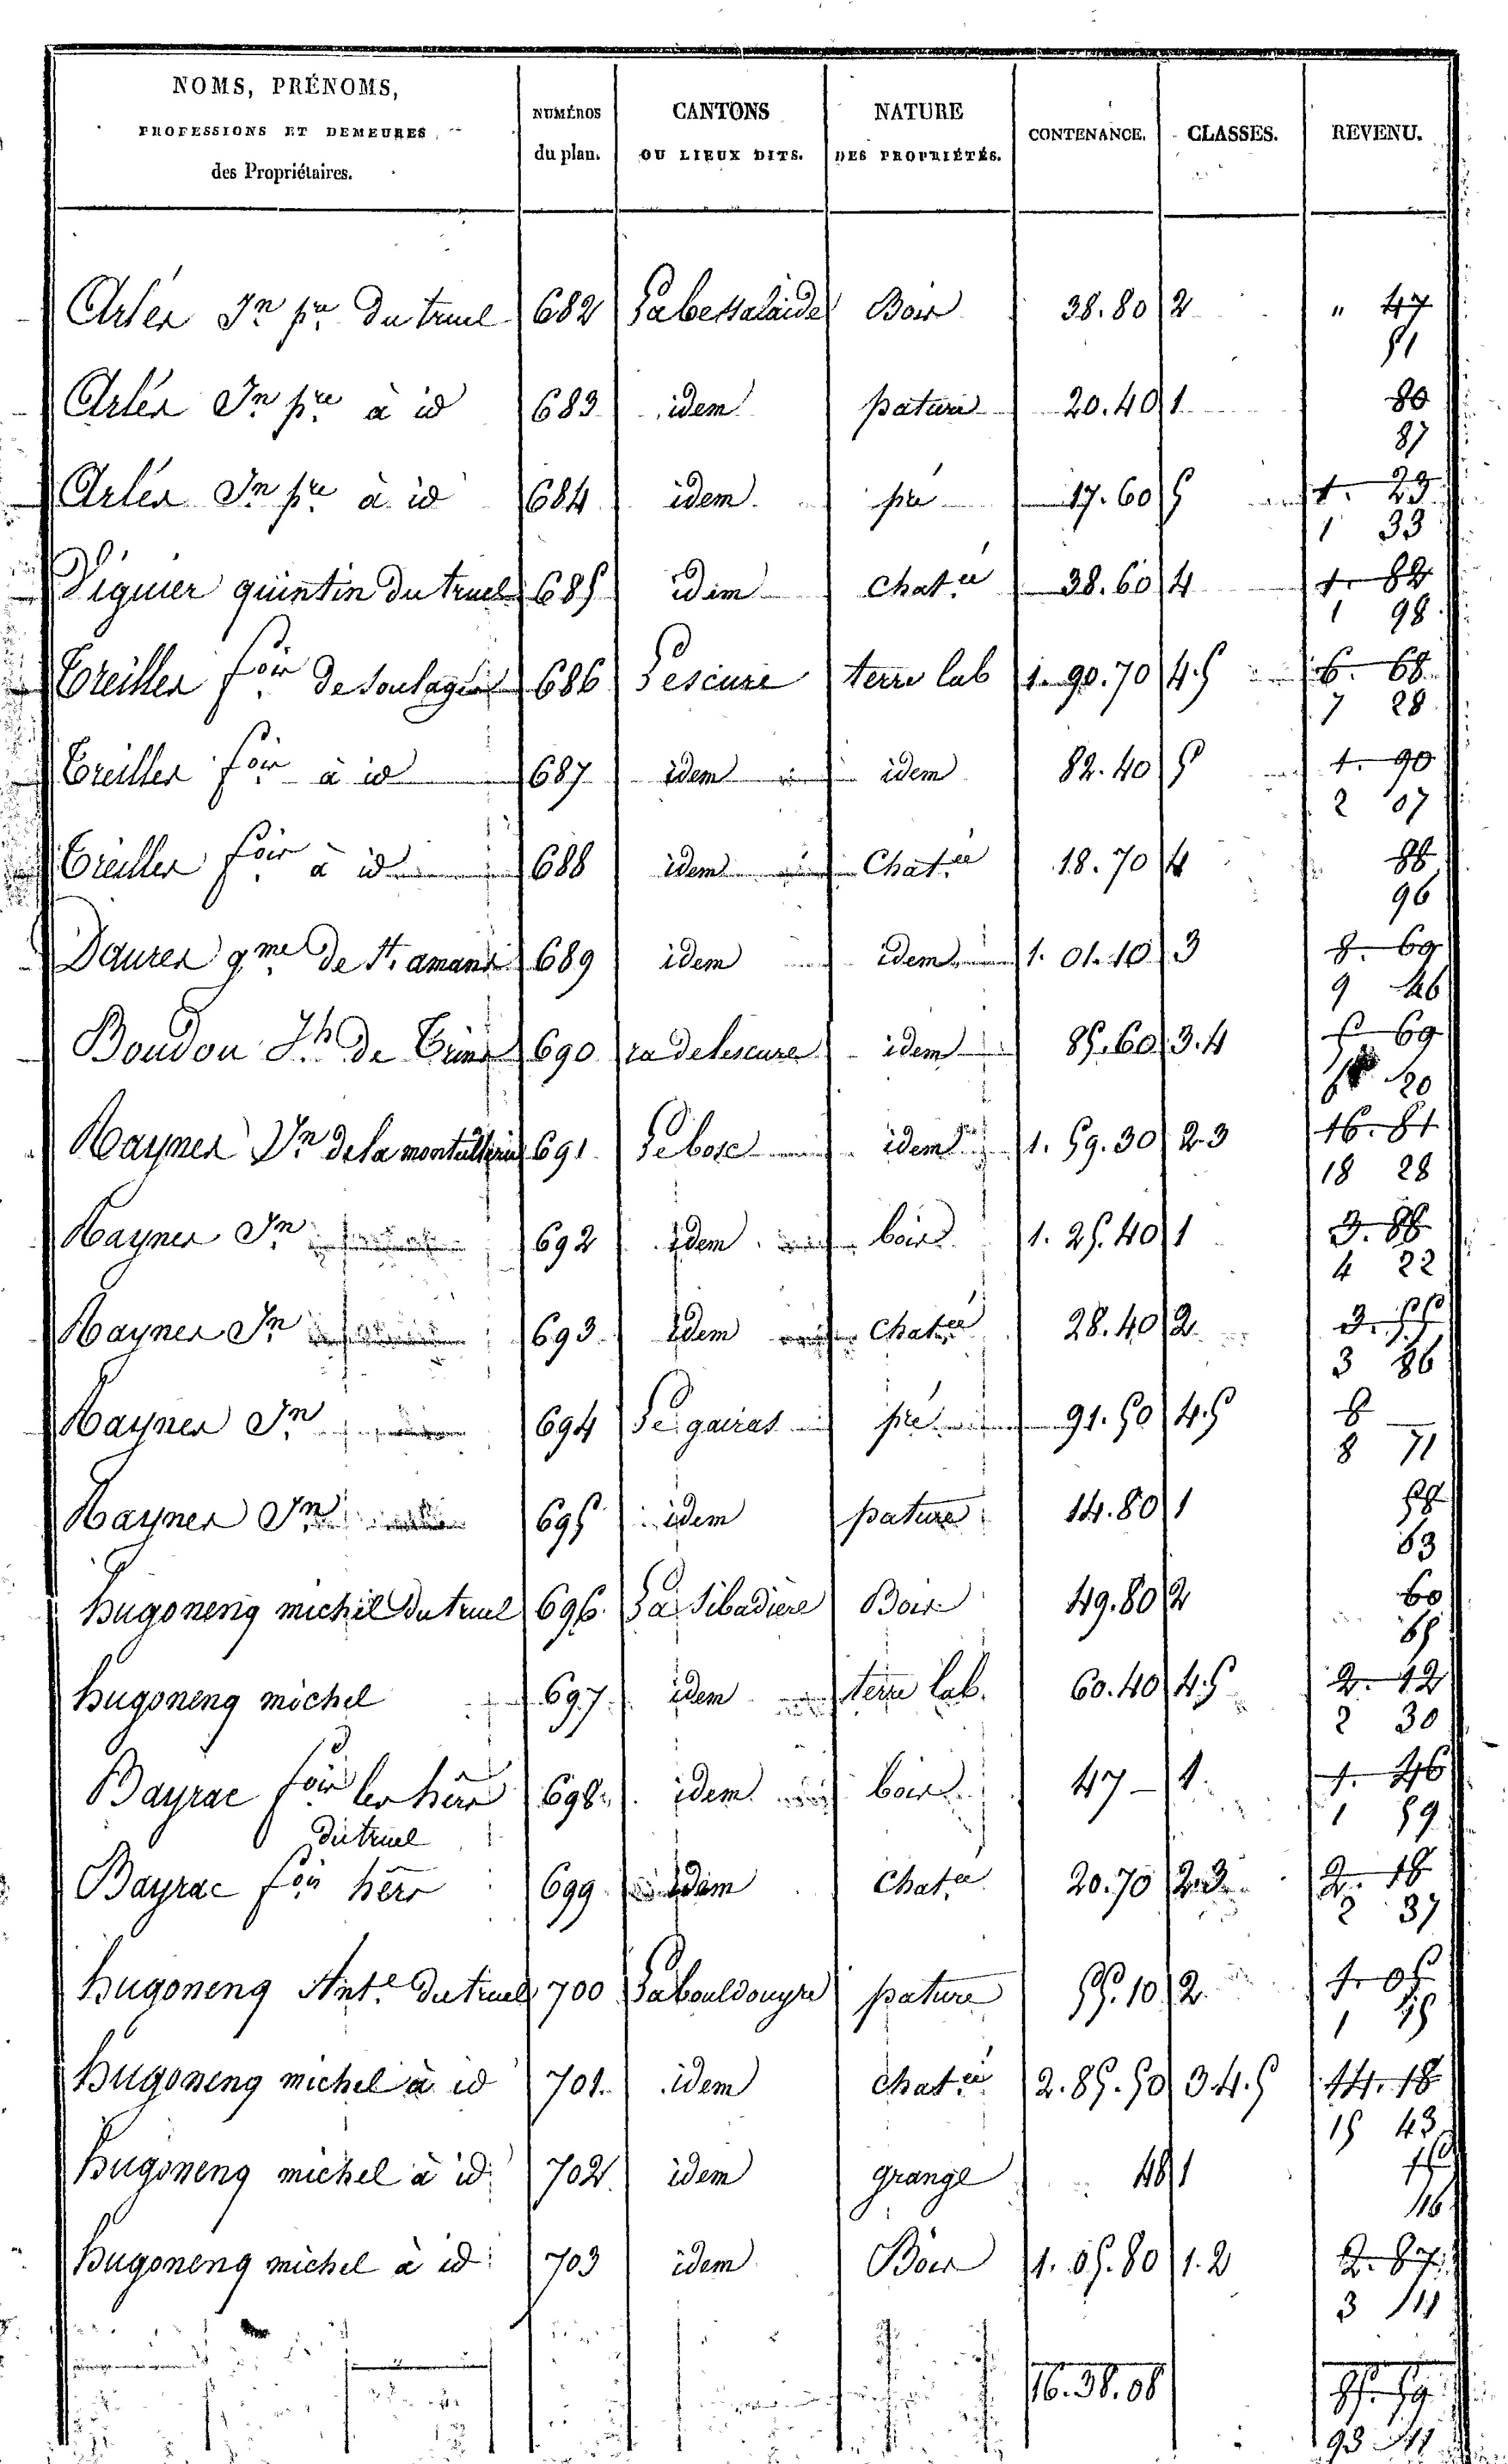 NOMS, PRÉNOMS,
PROFESSIONS ET DEMEURES
des Propriétaires.
NUMÉROS
du plan.
CANTONS
OU LIEUX DITS.
NATURE
DES PROPRIÉTÉS.
CONTENANCE.
CLASSES.
REVENU.
Arles Jn pre Du truel 682 Bois 38.80 2 " 47
51
Arles Jn pre à id 683 idem pature 20.40 1 80
87
Arles Jn pre à id 684 idem pré 17.60 5 1. 23
1 33
Viguier quintin Du truel 685 idem Chat.ée 38.60 4 1. 82
1 98
Treilles fois de soulages 686 Lescure terre lab 1.90.70 4.5 6. 68
7 28
Treilles fois à id 687 idem idem 82.40 5 1. 90
2 07
Treilles fois à id 688 idem Chat.ée 18.70 4 88
96
Daures gme de St. amans 689 idem idem 1.01.10 3 8. 69
9 46
Boudon Jh de 690 ra de lescure idem 85.60 3.4 5 69
6 20
Raynes Jn de la 691 Le bosc idem 1.59.30 2.3 16. 81
18 28
Raynes Jn 692 idem bois 1.25.40 1 3. 88
4 22
Raynes Jn 693 idem Chat.ée 28.40 2 3. 55
3 86
Raynes Jn 694 Le gairas pré 91.50 4.5 8 —
8 71
Raynes Jn 695 idem pature 14.80 1 58
63
hugoneng michel Du truel 696 La Sibadiere Bois 49.80 2 60
65
hugoneng michel 697 idem terre lab. 60.40 4.5 2. 12
2 30
Bayrac fois les hers 698 idem bois 47 — 1 1. 46
du truel
1 59
Bayrac fois hers 699 idem Chat.ée 20.70 2.3 2. 18
2 37
hugoneng Ant.e Du truel 700 La bouldouyre pature 55.10 2 1. 05
1 15
hugoneng michel à id 701 idem Chat.ée 2.85.50 3.4.5 14. 18
15 43
hugoneng michel à id 702 idem grange 48 1 15
16
hugoneng michel à id 703 idem Bois 1.05.80 1.2 2. 87
3 11
16.38.08 85. 59
93